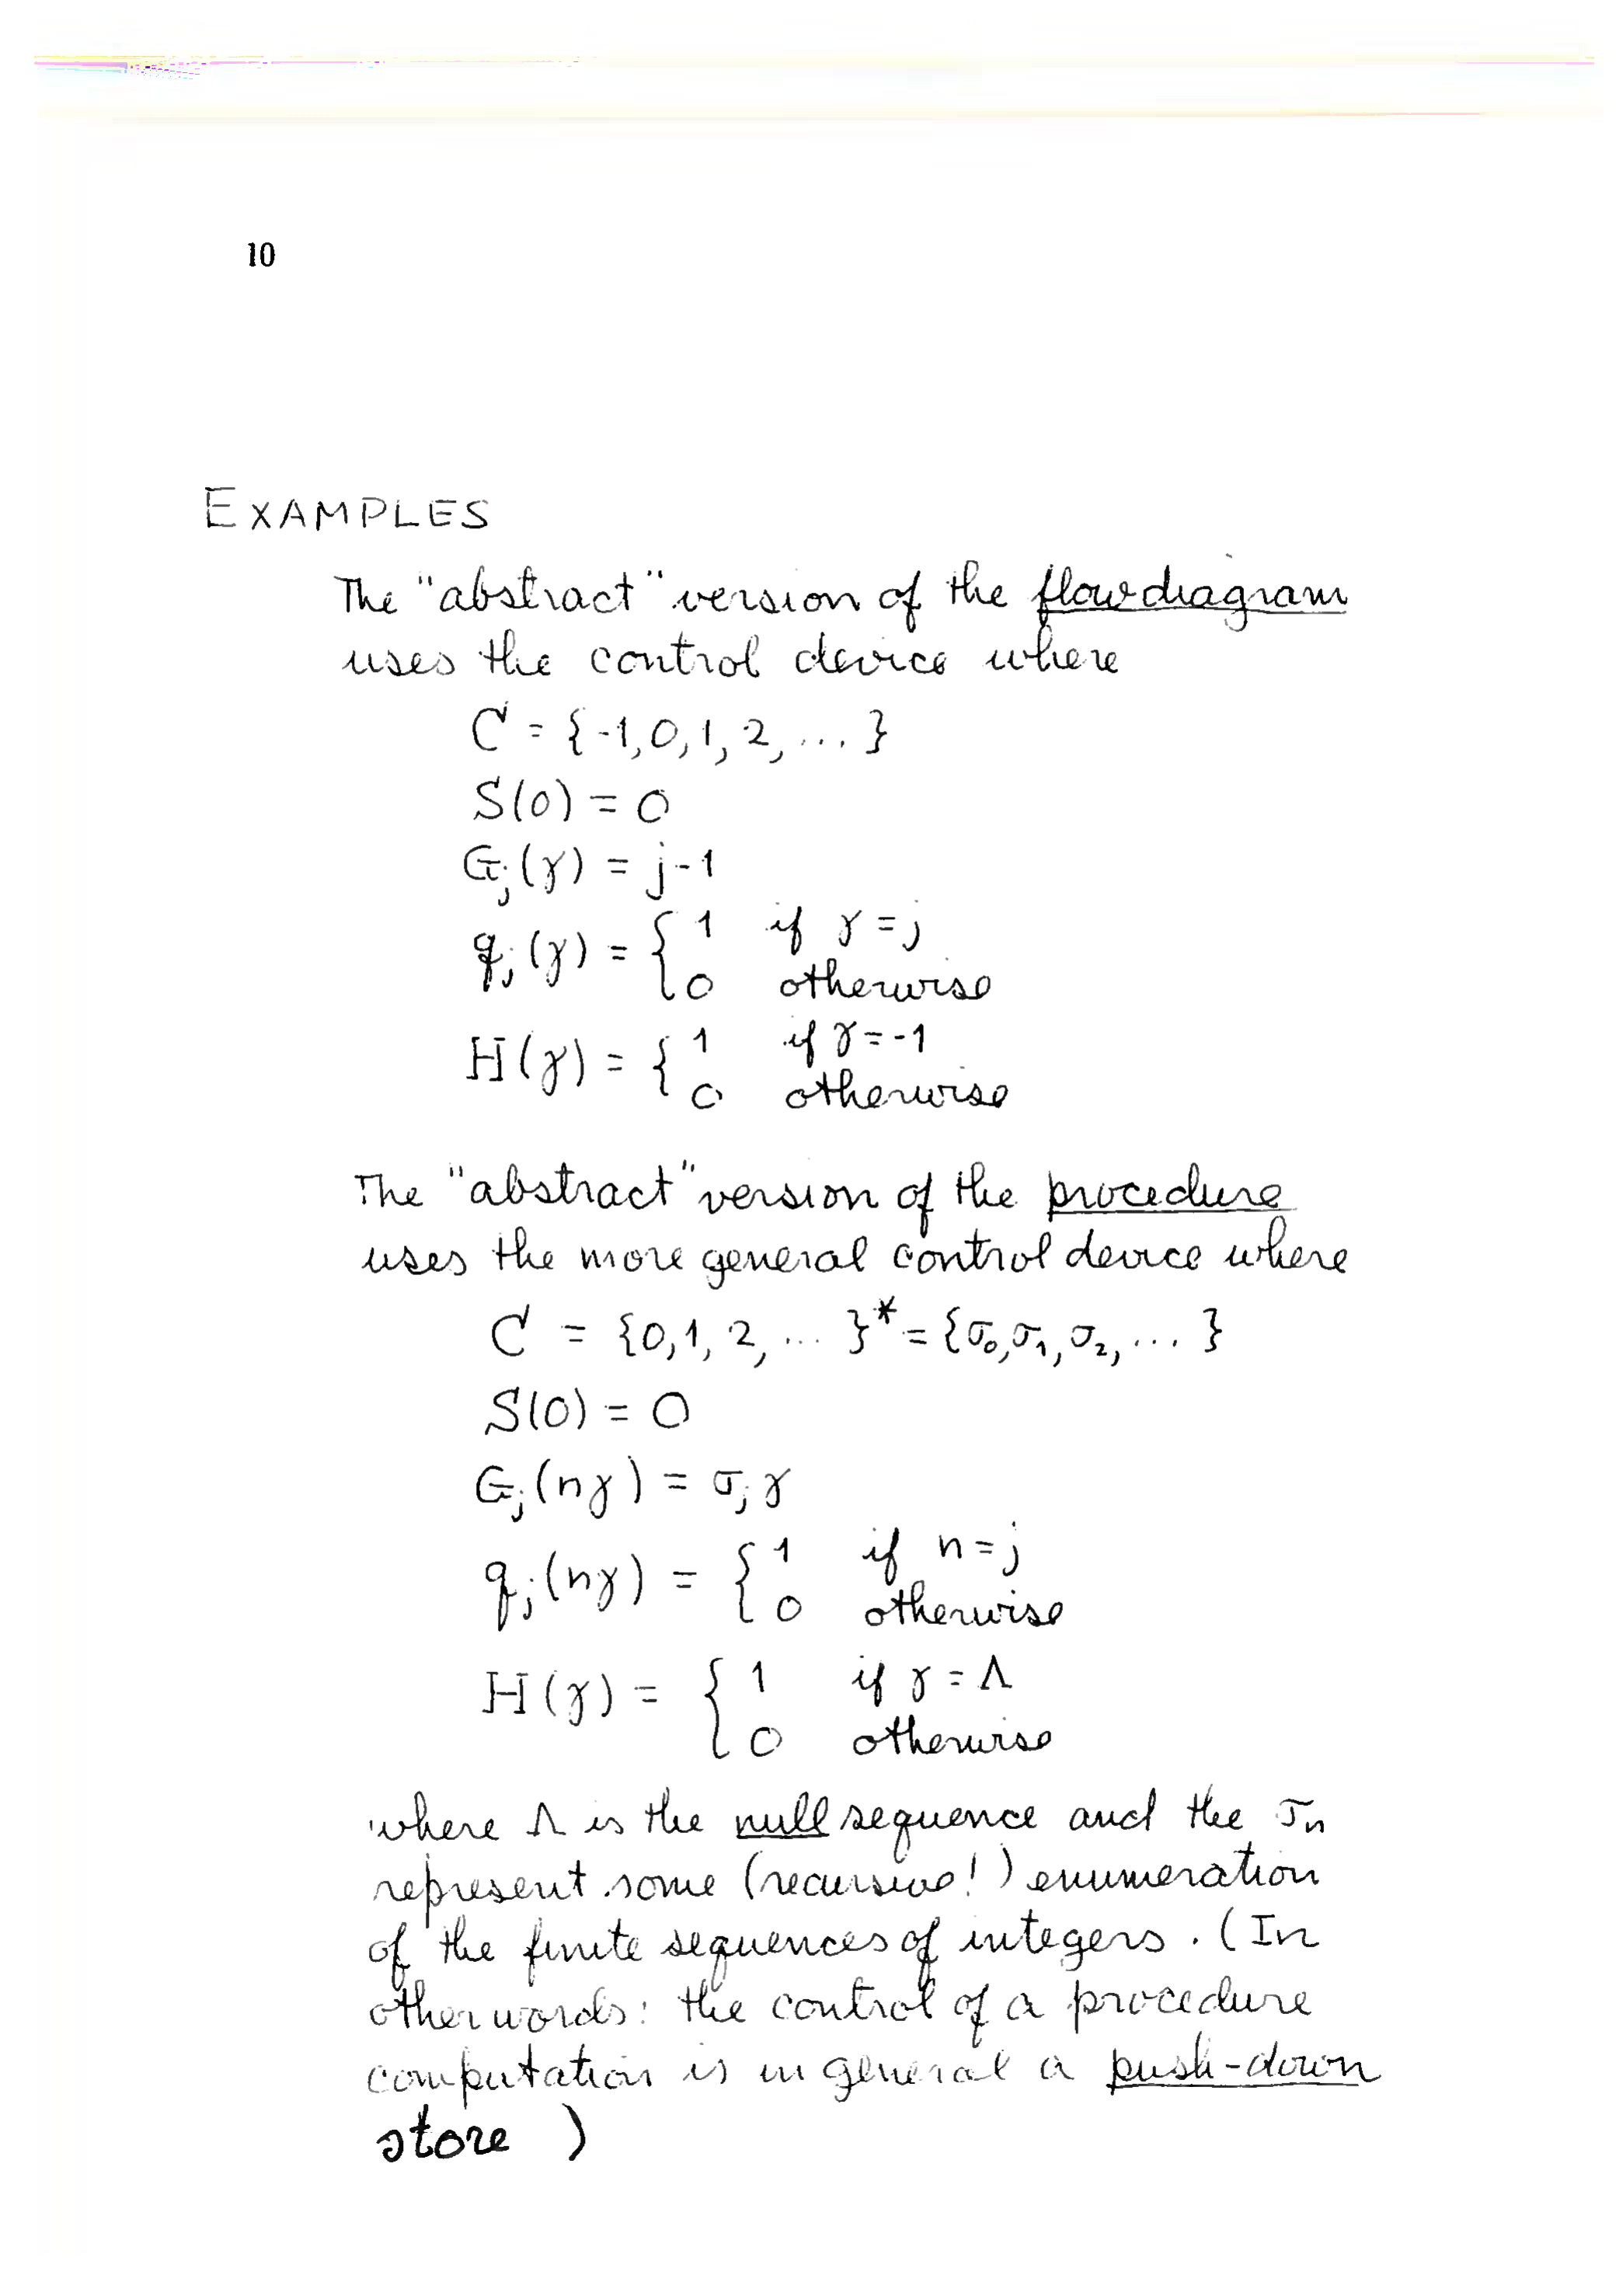 10
EXAMPLES
The "abstract" version of the flowdiagram
uses the control device where
C = {-1, 0, 1, 2, ... }
S(0) = 0
G_j(γ) = j-1
q_j(γ) = { 1 if γ = j
0 otherwise
H(γ) = { 1 if γ = -1
0 otherwise
The "abstract" version of the procedure
uses the more general control device where
C = {0, 1, 2, ... }* = {σ₀, σ₁, σ₂, ... }
S(0) = 0
G_j(nγ) = σ_j γ
q_j(nγ) = { 1 if n = j
0 otherwise
H(γ) = { 1 if γ = Λ
0 otherwise
where Λ is the null sequence and the σₙ
represent some (recursive!) enumeration
of the finite sequences of integers. (In
other words: the control of a procedure
computation is in general a push-down
store )